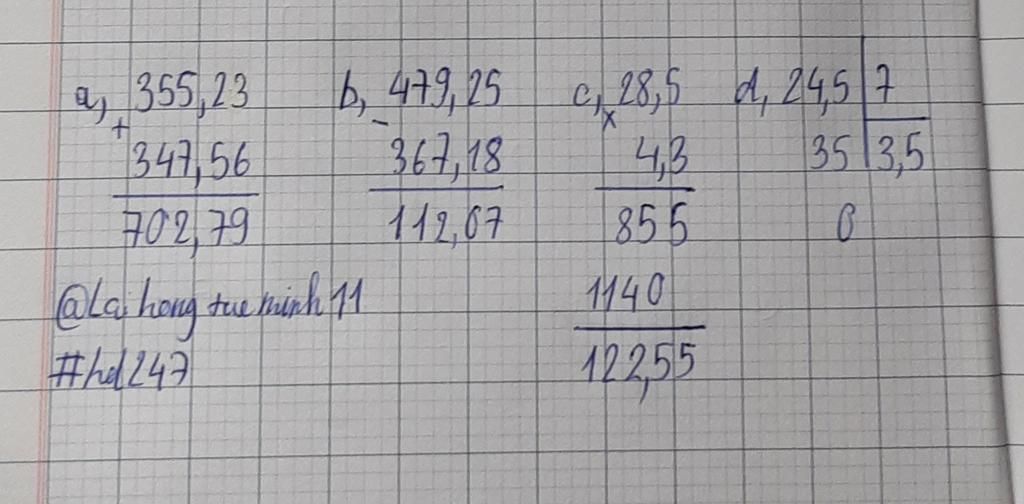 a, 355,23 b, 479,25 c, 28,5 d, 24,5 7
+ - x
347,56 367,18 4,3 35 3,5
702,79 112,07 855 0
@Lai hong tue minh 11 1140
#hd247 122,55